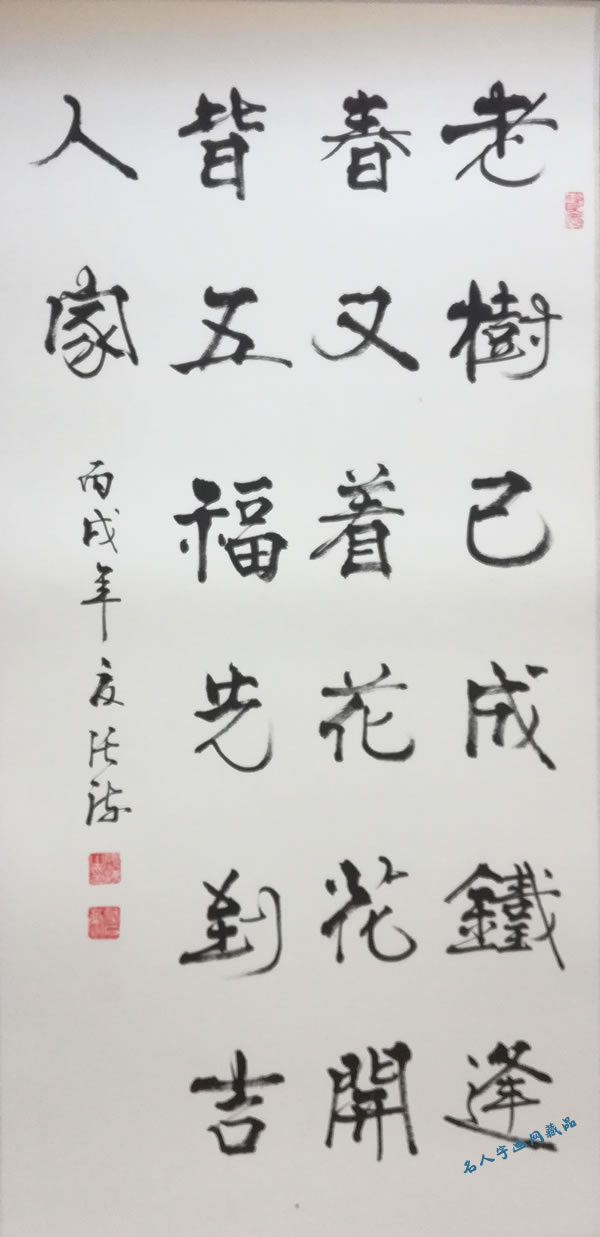 老樹已成鐵逢
春又着花花開
皆五福先到吉
人家
丙戌年夏
名人字画网藏品